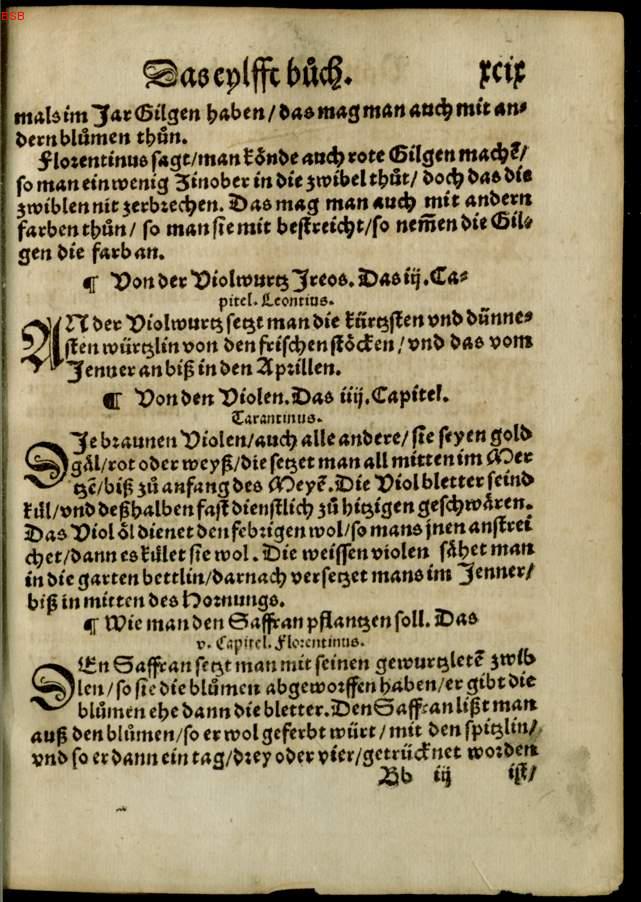 BSB
Das eylfft bůch. xcix
mals im Jar Gilgen haben / das mag man auch mit an⸗
dern blůmen thůn.
Florentinus sagt/man könde auch rote Gilgen machẽ/
so man ein wenig Zinober in die zwibel thůt/ doch das die
zwiblen nit zerbrechen. Das mag man auch mit andern
farben thůn/ so man sie mit bestreicht/so nem̃en die Gil⸗
gen die farb an.
¶ Von der Violwurtz Jreos. Das iij. Ca⸗
pitel. Leontius.
AN der Violwurtz setzt man die kürtzsten vnd dünne⸗
sten würtzlin von den frischen stöcken / vnd das vom
Jenner an biß in den Aprillen.
¶ Von den Violen. Das iiij. Capitel.
Tarantinus.
DJe braunen Violen/auch alle andere/ sie seyen gold
gäl/rot oder weyß/die setzet man all mitten im Mer
tzẽ/biß zů anfang des Meyẽ. Die Viol bletter seind
kül/vnd deßhalben fast dienstlich zů hitzigen geschwären.
Das Viol öl dienet den febrigen wol/so mans jnen anstrei
chet/dann es kület sie wol. Die weissen violen sähet man
in die garten bettlin/darnach versetzet mans im Jenner/
biß in mitten des Hornungs.
¶ Wie man den Saffran pflantzen soll. Das
v. Capitel. Florentinus.
DEn Saffran setzt man mit seinen gewurtzletẽ zwib
len/so sie die blůmen abgeworffen haben/er gibt die
blůmen ehe dann die bletter. Den Saffran lißt man
auß den blůmen/so er wol geferbt würt/ mit den spitzlin/
vnd so er dann ein tag/drey oder vier/getrücknet worden
Bb iij ist/